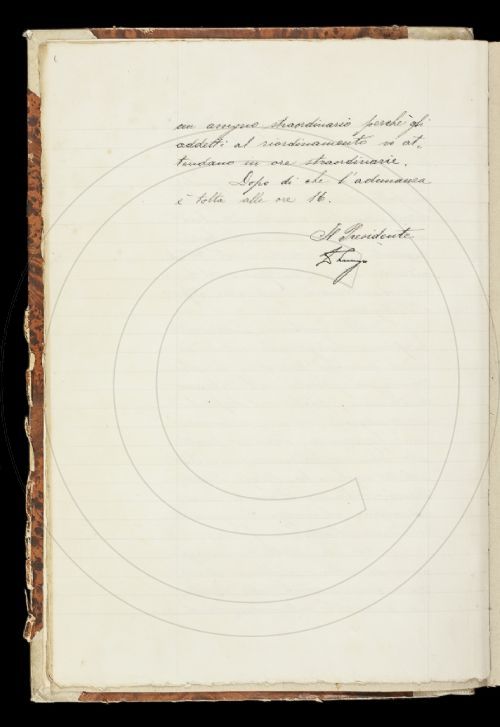 un assegno straordinario perchè gli
addetti al riordinamento vi at-
tendano in ore straordinarie.
Dopo di che l'adunanza
è tolta alle ore 16.
Il Presidente